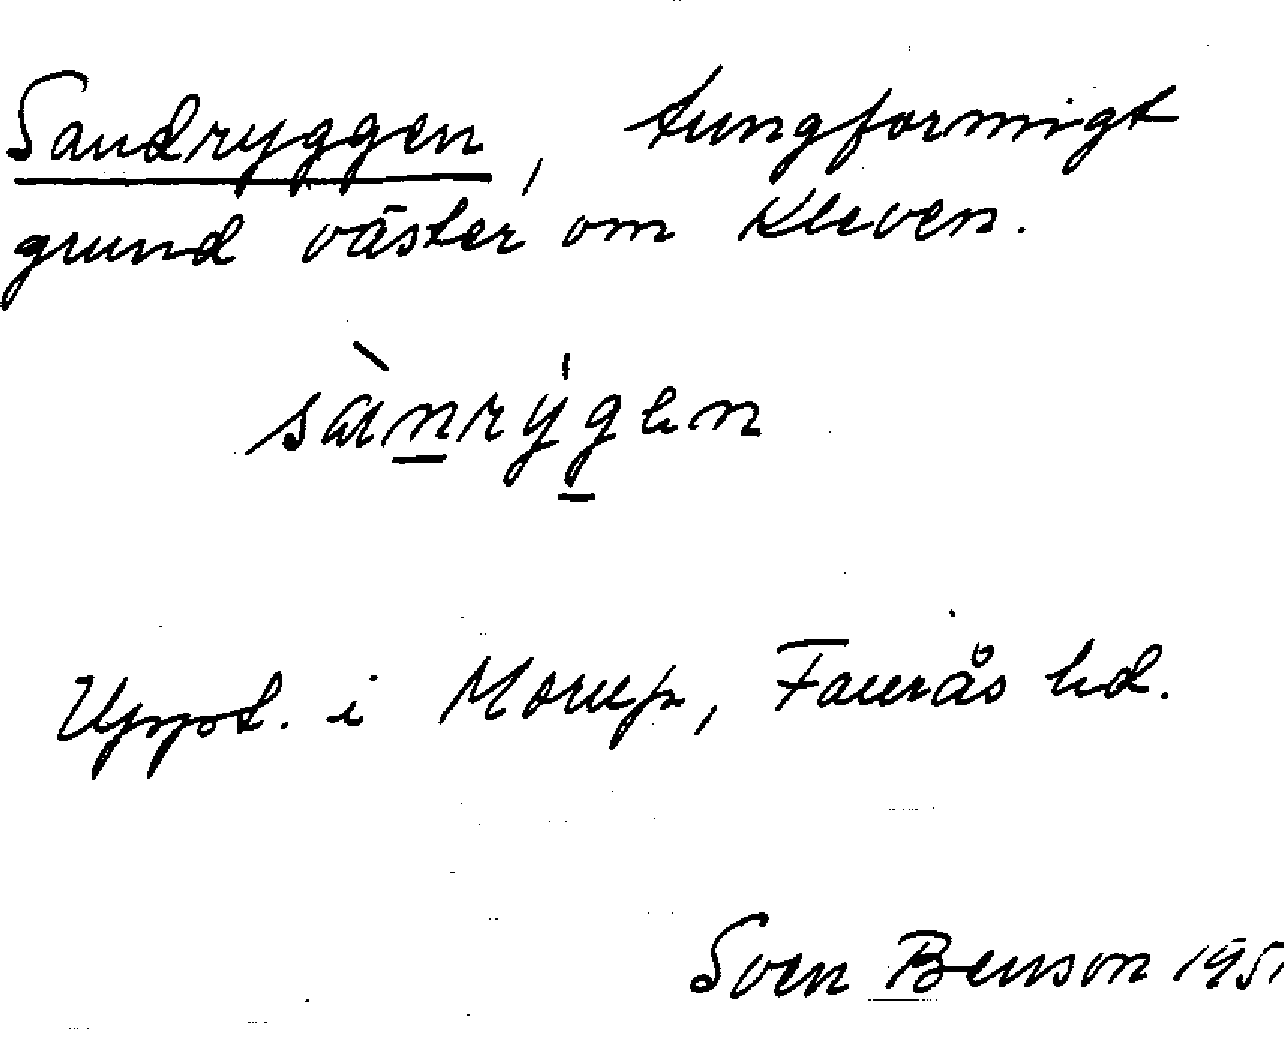 Sandryggen, tungformigt
grund väster om Kleven.
sànrýgen
Uppt. i Morup, Faurås hd.
Sven Benson 1951